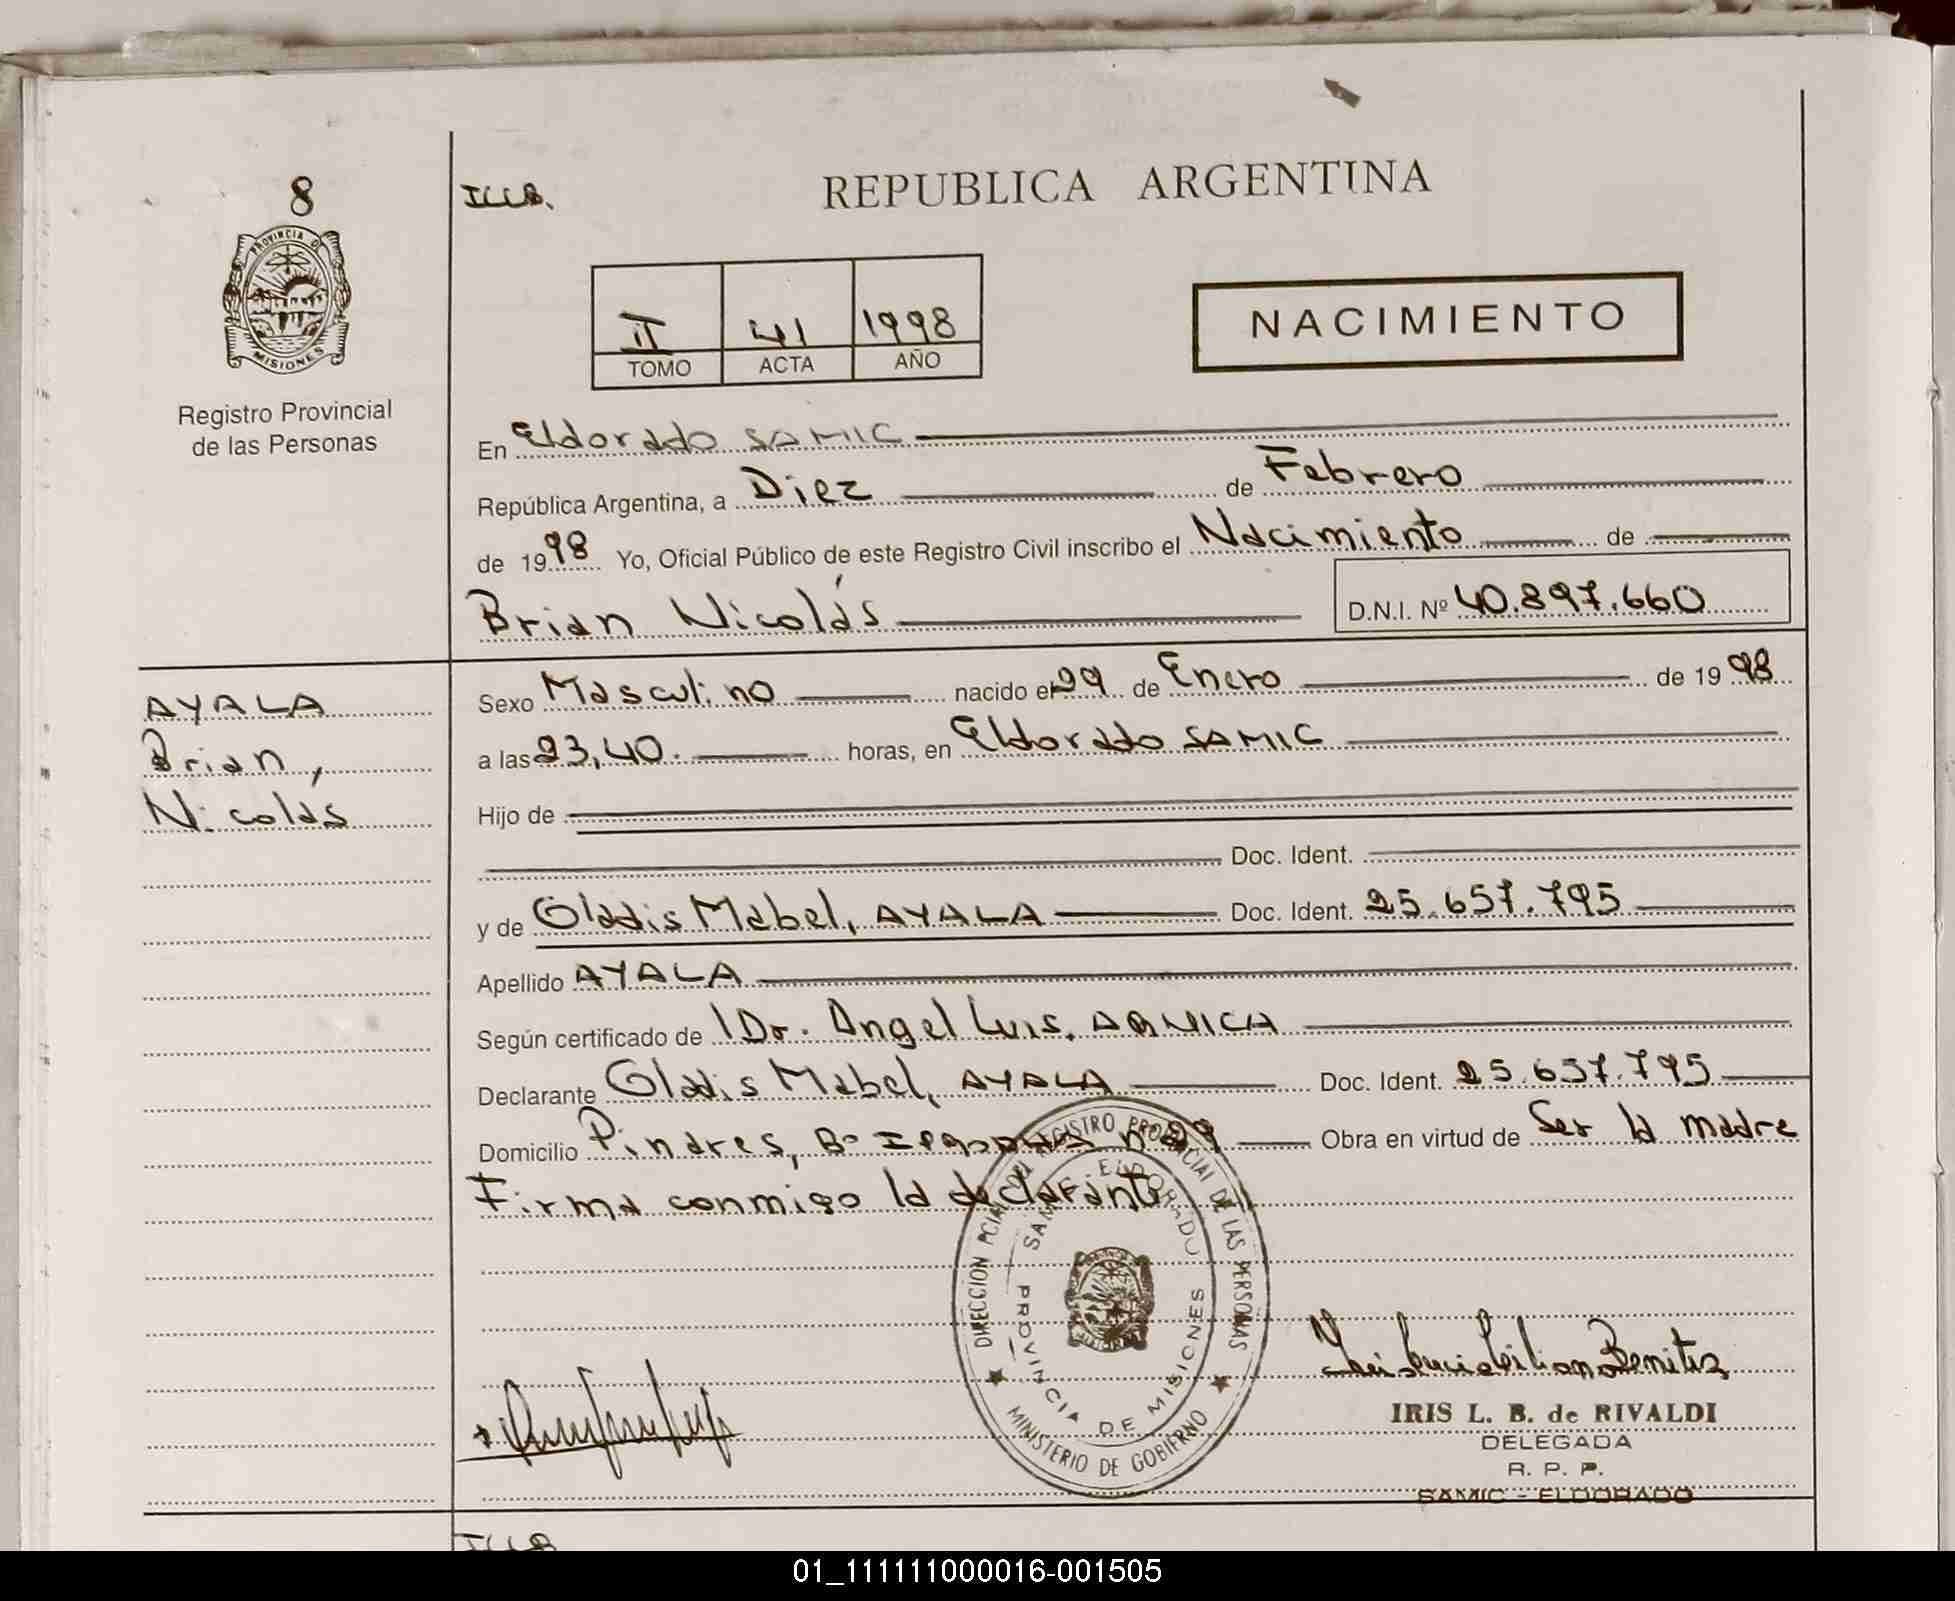 8
REPUBLICA ARGENTINA
PROVINCIA D
MISIONES
II 41 1998
TOMO ACTA AÑO
NACIMIENTO
Registro Provincial
de las Personas
En Eldorado SAMIC
República Argentina, a Diez de Febrero
de 1998 Yo, Oficial Público de este Registro Civil inscribo el Nacimiento de
Brian Nicolás D.N.I. Nº 40.897.660
AYALA
Brian,
Nicolás
Sexo Masculino nacido el 29 de Enero de 1998
a las 23,40. horas, en Eldorado SAMIC
Hijo de
Doc. Ident.
y de Gladis Mabel, AYALA Doc. Ident. 25.657.795
Apellido AYALA
Según certificado de Dr. Angel Luis,
Declarante Gladis Mabel, AYALA Doc. Ident. 25.657.795
Domicilio Pinares, Bº nº 29 Obra en virtud de Ser la madre
Firma conmigo la declarante
DIRECCION PCIAL DEL REGISTRO PROVINCIAL DE LAS PERSONAS
SAMIC ELDORADO
PROVINCIA DE MISIONES
MINISTERIO DE GOBIERNO
Benitez
IRIS L. B. de RIVALDI
DELEGADA
R. P. P.
SAMIC - ELDORADO
01_111111000016-001505